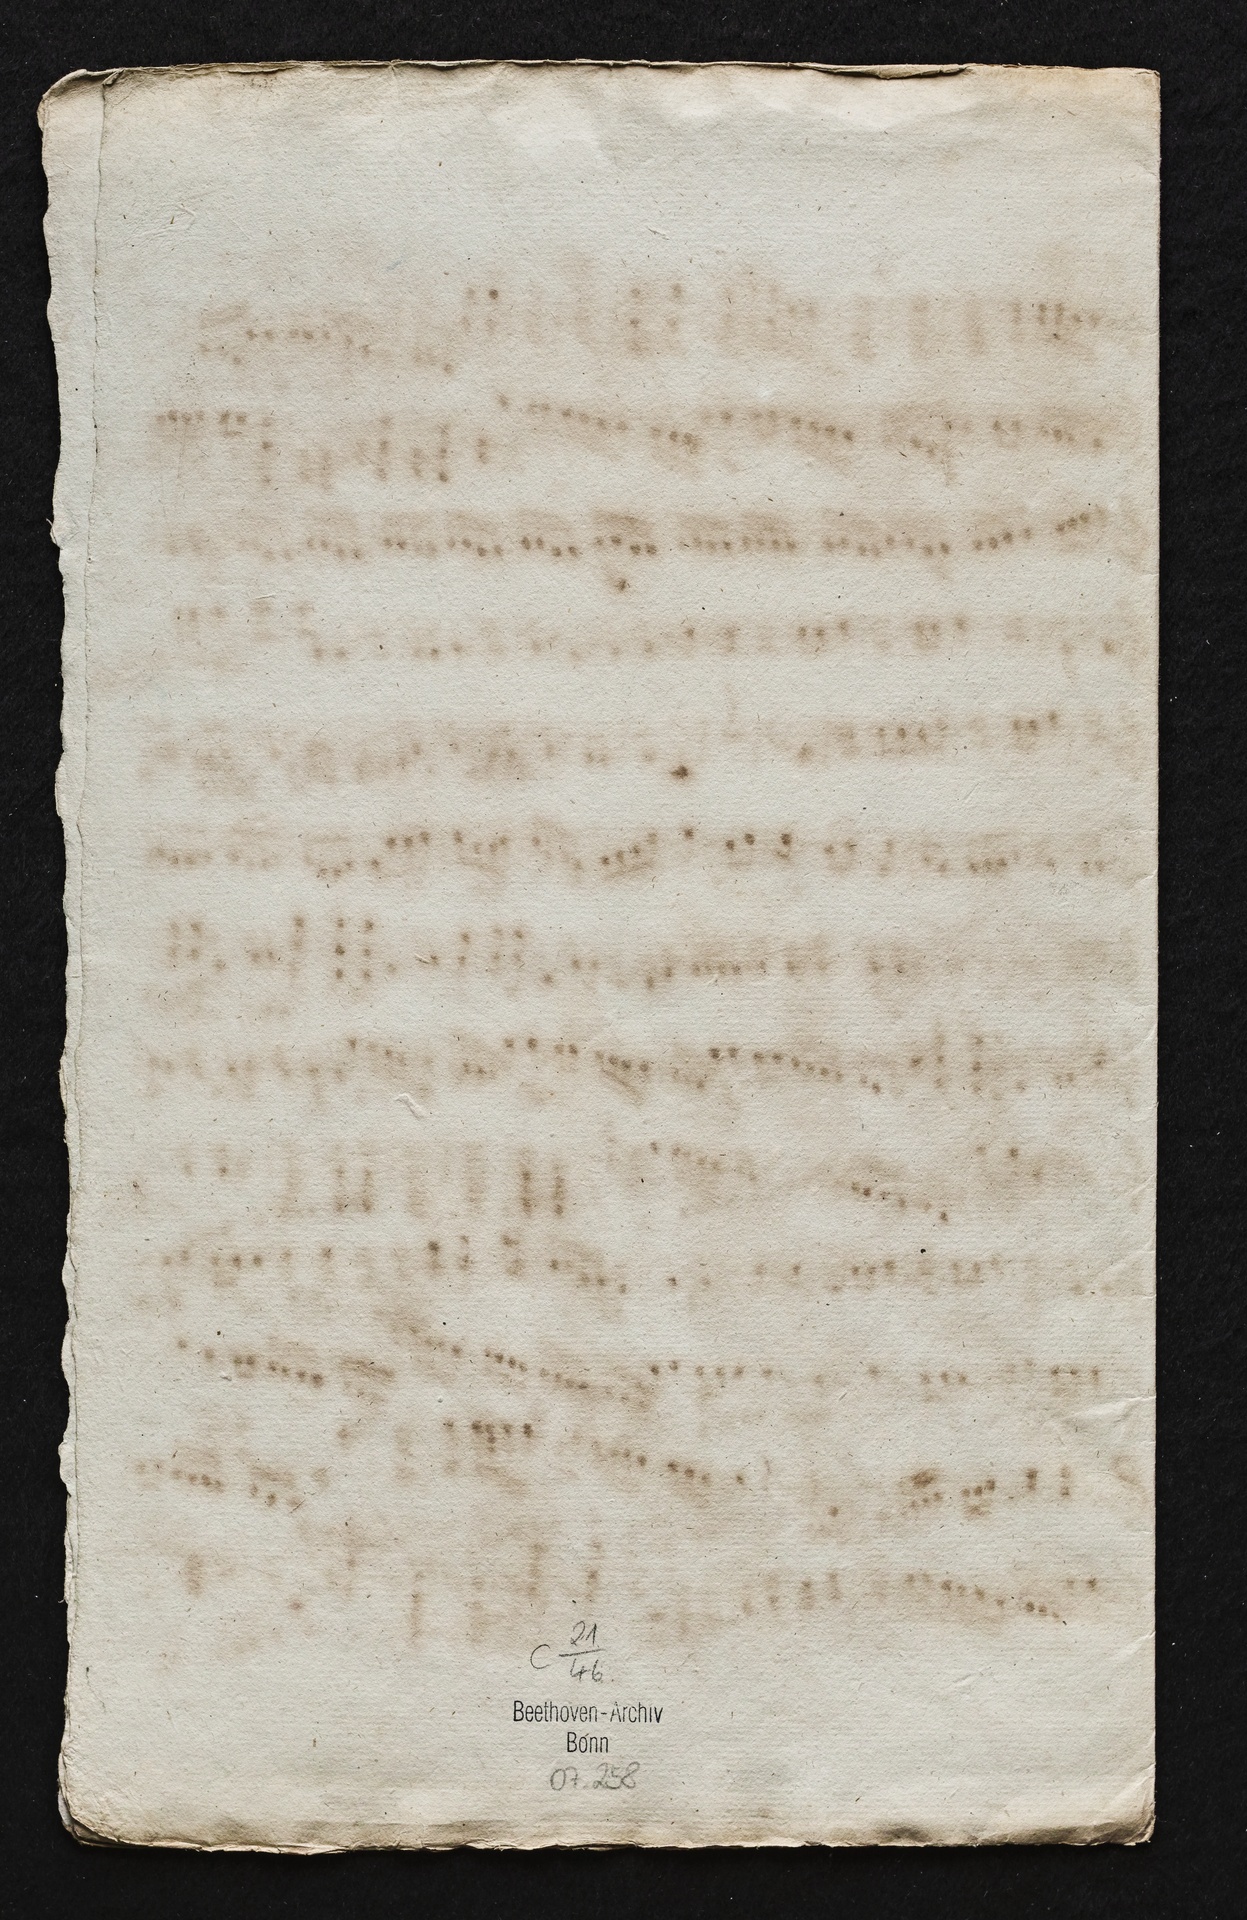 C 21/46
Beethoven-Archiv
Bonn
07.258